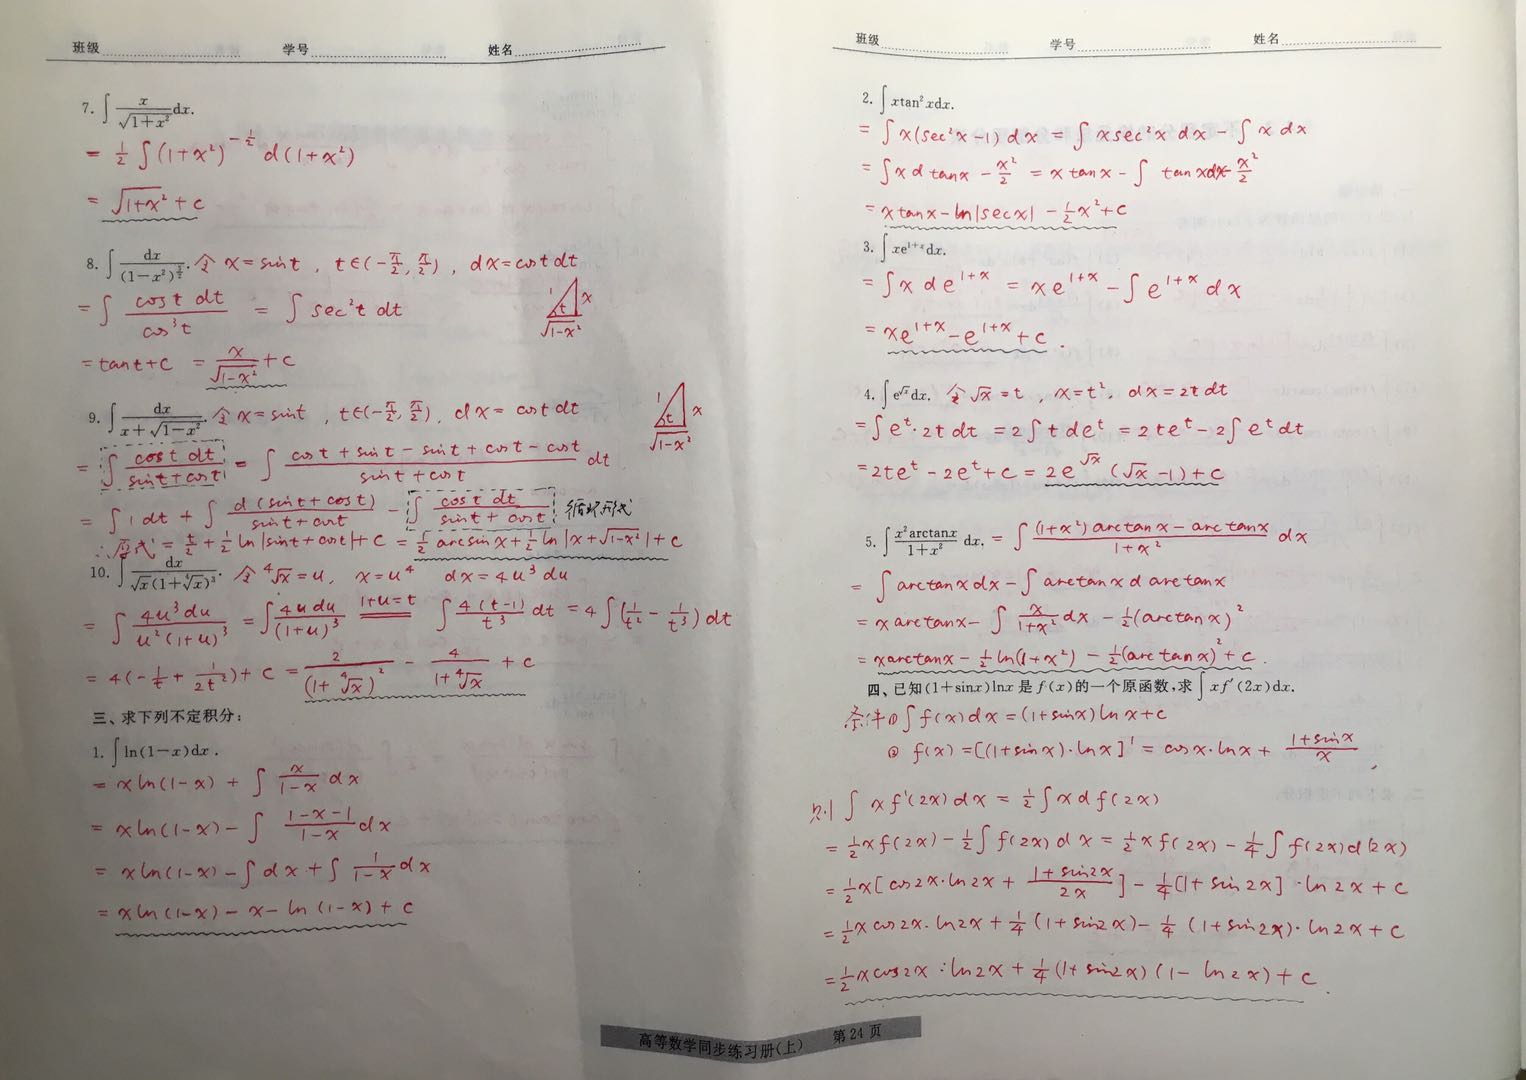 班级 学号 姓名
7. ∫ x/√(1+x²) dx.
= ½ ∫(1+x²)^(-½) d(1+x²)
= √(1+x²) + c
8. ∫ dx/(1-x²)^(3/2). 令 x=sint, t∈(-π/2, π/2), dx=cost dt
= ∫ cost dt/cos³t = ∫ sec²t dt
1 x t √(1-x²)
= tant+c = x/√(1-x²) + c
9. ∫ dx/(x+√(1-x²)). 令 x=sint, t∈(-π/2, π/2), dx=cost dt
1 x t √(1-x²)
= ∫ cost dt/(sint+cost) = ∫ (cost+sint-sint+cost-cost)/(sint+cost) dt
= ∫1dt + ∫ d(sint+cost)/(sint+cost) - ∫ cost dt/(sint+cost) 循环形式
∴原式 = t/2 + ½ ln|sint+cost|+c = ½ arcsinx + ½ ln|x+√(1-x²)|+c
10. ∫ dx/(√x(1+∜x)³). 令 ∜x=u, x=u⁴ dx=4u³du
= ∫ 4u³du/(u²(1+u)³) = ∫ 4udu/(1+u)³ 1+u=t ∫ 4(t-1)/t³ dt = 4∫(1/t² - 1/t³)dt
= 4(-1/t + 1/2t²)+c = 2/(1+∜x)² - 4/(1+∜x) + c
三、求下列不定积分:
1. ∫ln(1-x)dx.
= xln(1-x) + ∫ x/(1-x) dx
= xln(1-x) - ∫ (1-x-1)/(1-x) dx
= xln(1-x) - ∫dx + ∫ 1/(1-x) dx
= xln(1-x) - x - ln(1-x) + c
班级 学号 姓名
2. ∫xtan²xdx.
= ∫x(sec²x-1)dx = ∫xsec²x dx - ∫x dx
= ∫xd tanx - x²/2 = x tanx - ∫ tanxdx - x²/2
= x tanx - ln|secx| - ½x²+c
3. ∫xe^(1+x)dx.
= ∫x d e^(1+x) = xe^(1+x) - ∫e^(1+x)dx
= xe^(1+x) - e^(1+x) + c.
4. ∫e^(√x)dx. 令√x=t, x=t², dx=2tdt
= ∫e^t·2tdt = 2∫tde^t = 2te^t - 2∫e^t dt
= 2te^t - 2e^t + c = 2e^(√x)(√x-1)+c
5. ∫ x²arctanx/(1+x²) dx. = ∫ ((1+x²)arctanx - arctanx)/(1+x²) dx
= ∫arctanxdx - ∫arctanx d arctanx
= xarctanx - ∫ x/(1+x²) dx - ½(arctanx)²
= xarctanx - ½ln(1+x²) - ½(arctanx)²+c.
四、已知(1+sinx)lnx是f(x)的一个原函数,求∫xf′(2x)dx.
条件①∫f(x)dx=(1+sinx)lnx+c
② f(x)=[(1+sinx)·lnx]′ = cosx·lnx + (1+sinx)/x,
则∫xf′(2x)dx = ½∫xdf(2x)
= ½xf(2x) - ½∫f(2x)dx = ½xf(2x) - ¼∫f(2x)d(2x)
= ½x[cos2x·ln2x + (1+sin2x)/2x] - ¼[1+sin2x]·ln2x+c
= ½xcos2x·ln2x + ¼(1+sin2x) - ¼(1+sin2x)·ln2x+c
= ½xcos2x·ln2x + ¼(1+sin2x)(1-ln2x)+c.
高等数学同步练习册(上) 第24页